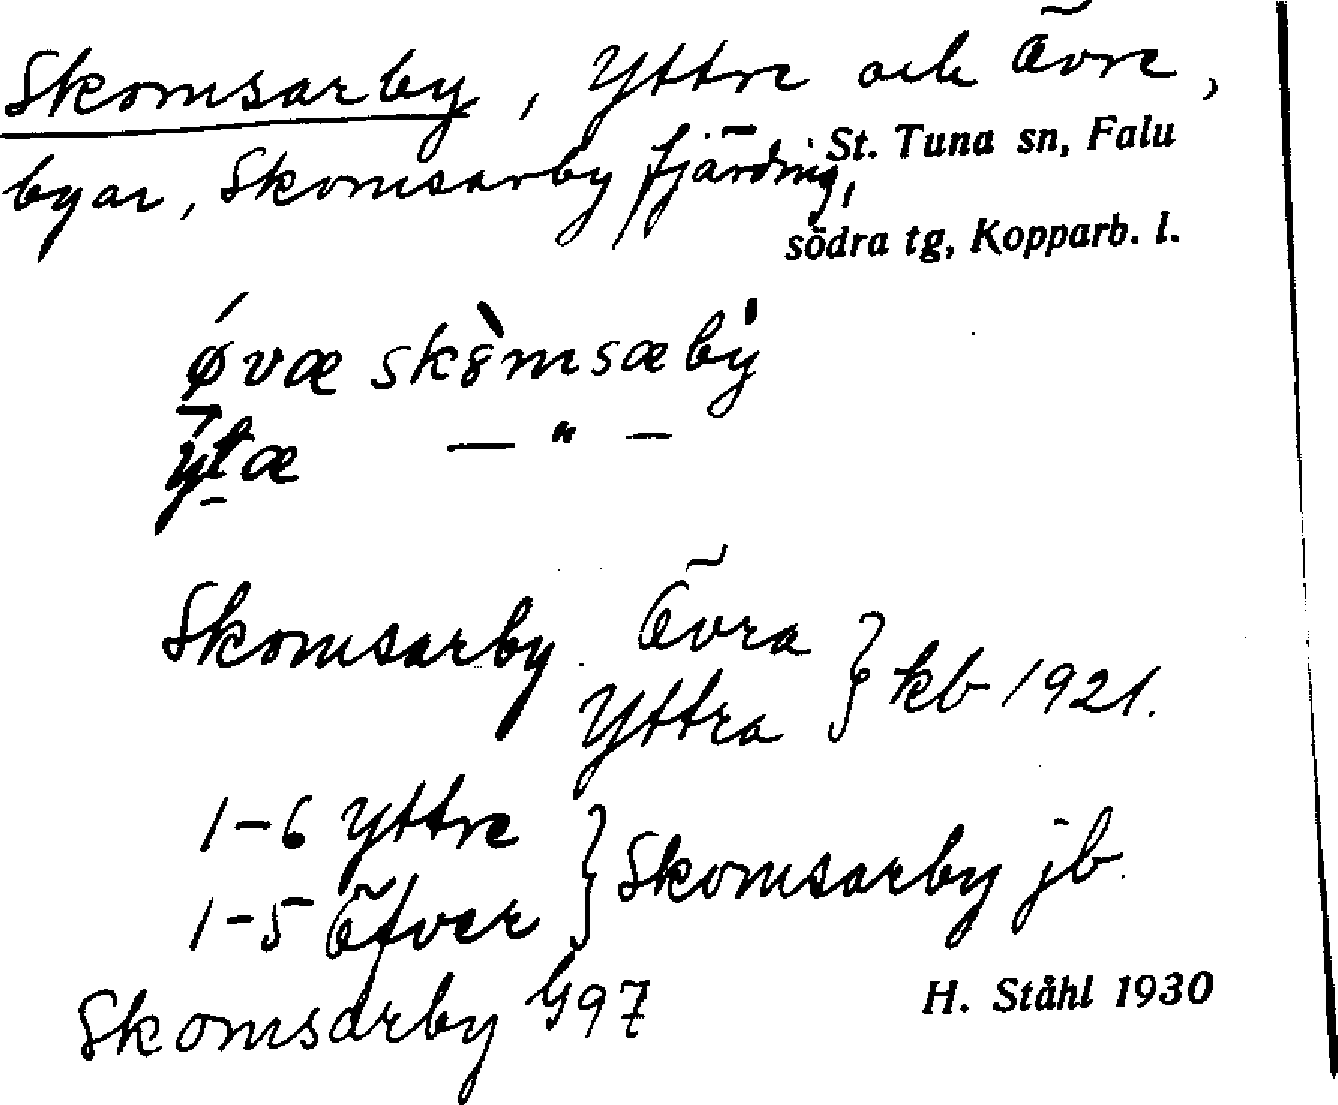 Skomsarby, Yttre och Övre,
St. Tuna sn, Falu
byar, Skomsarby fjärding,
södra tg, Kopparb. l.
øvæ skòmsæbý
ýtæ — " —
Skomsarby Övra
Yttra } kb 1921.
1-6 Yttre
1-5 Öfver } Skomsarby jb
Skomsarby G97
H. Ståhl 1930